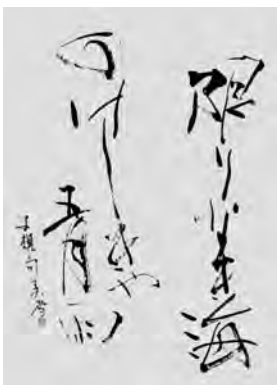 限りなき海
のけしきや
五月雨
子規句